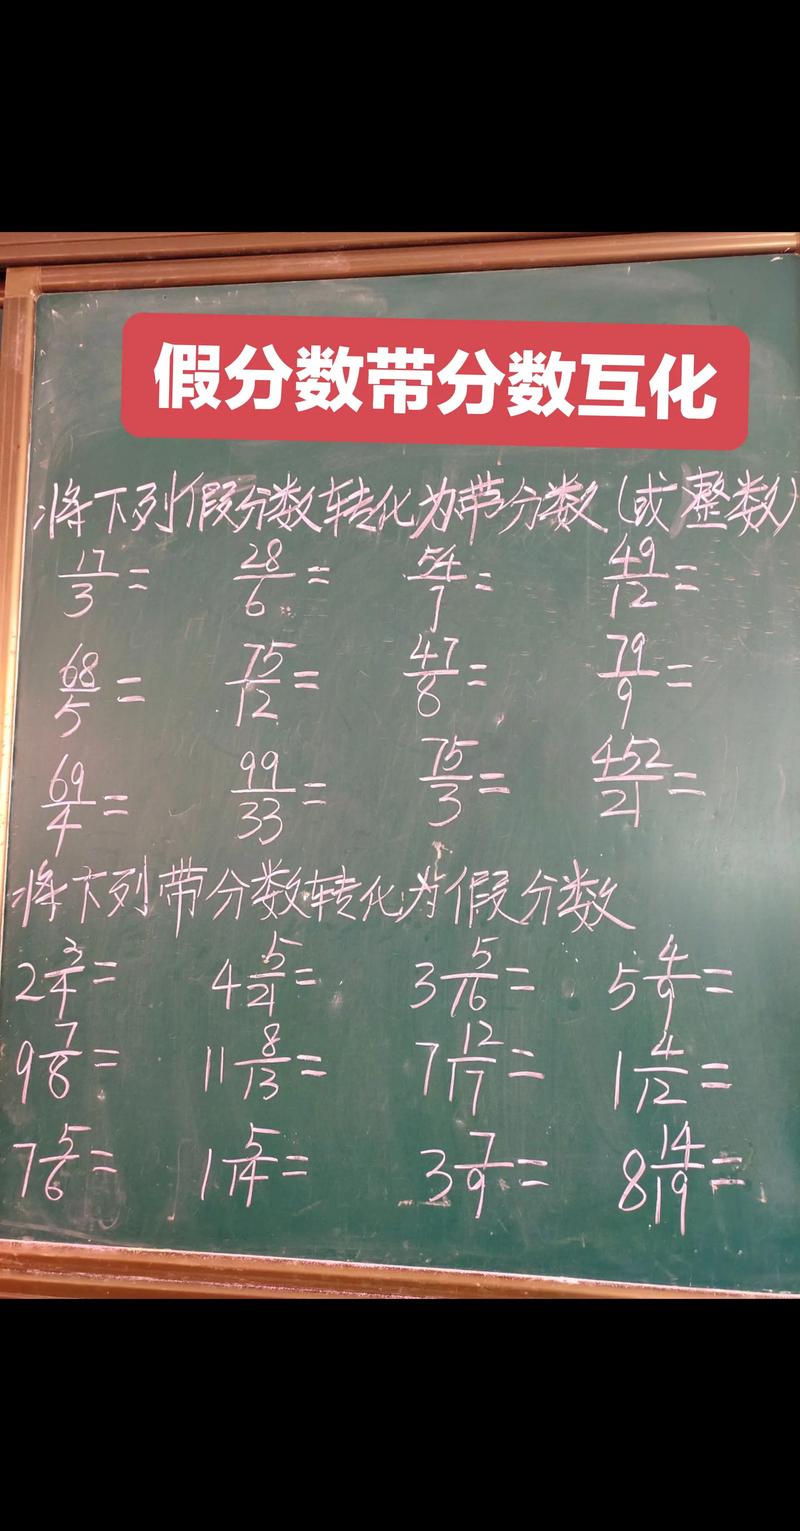 假分数带分数互化
将下列假分数转化为带分数(或整数)
17/3= 28/6= 54/7= 49/12=
68/5= 75/12= 47/8= 79/9=
69/4= 99/33= 75/3= 452/21=
将下列带分数转化为假分数
2 3/4= 4 5/21= 3 5/16= 5 4/9=
9 7/8= 11 8/13= 7 12/17= 1 4/12=
7 5/6= 1 5/14= 3 7/9= 8 14/19=